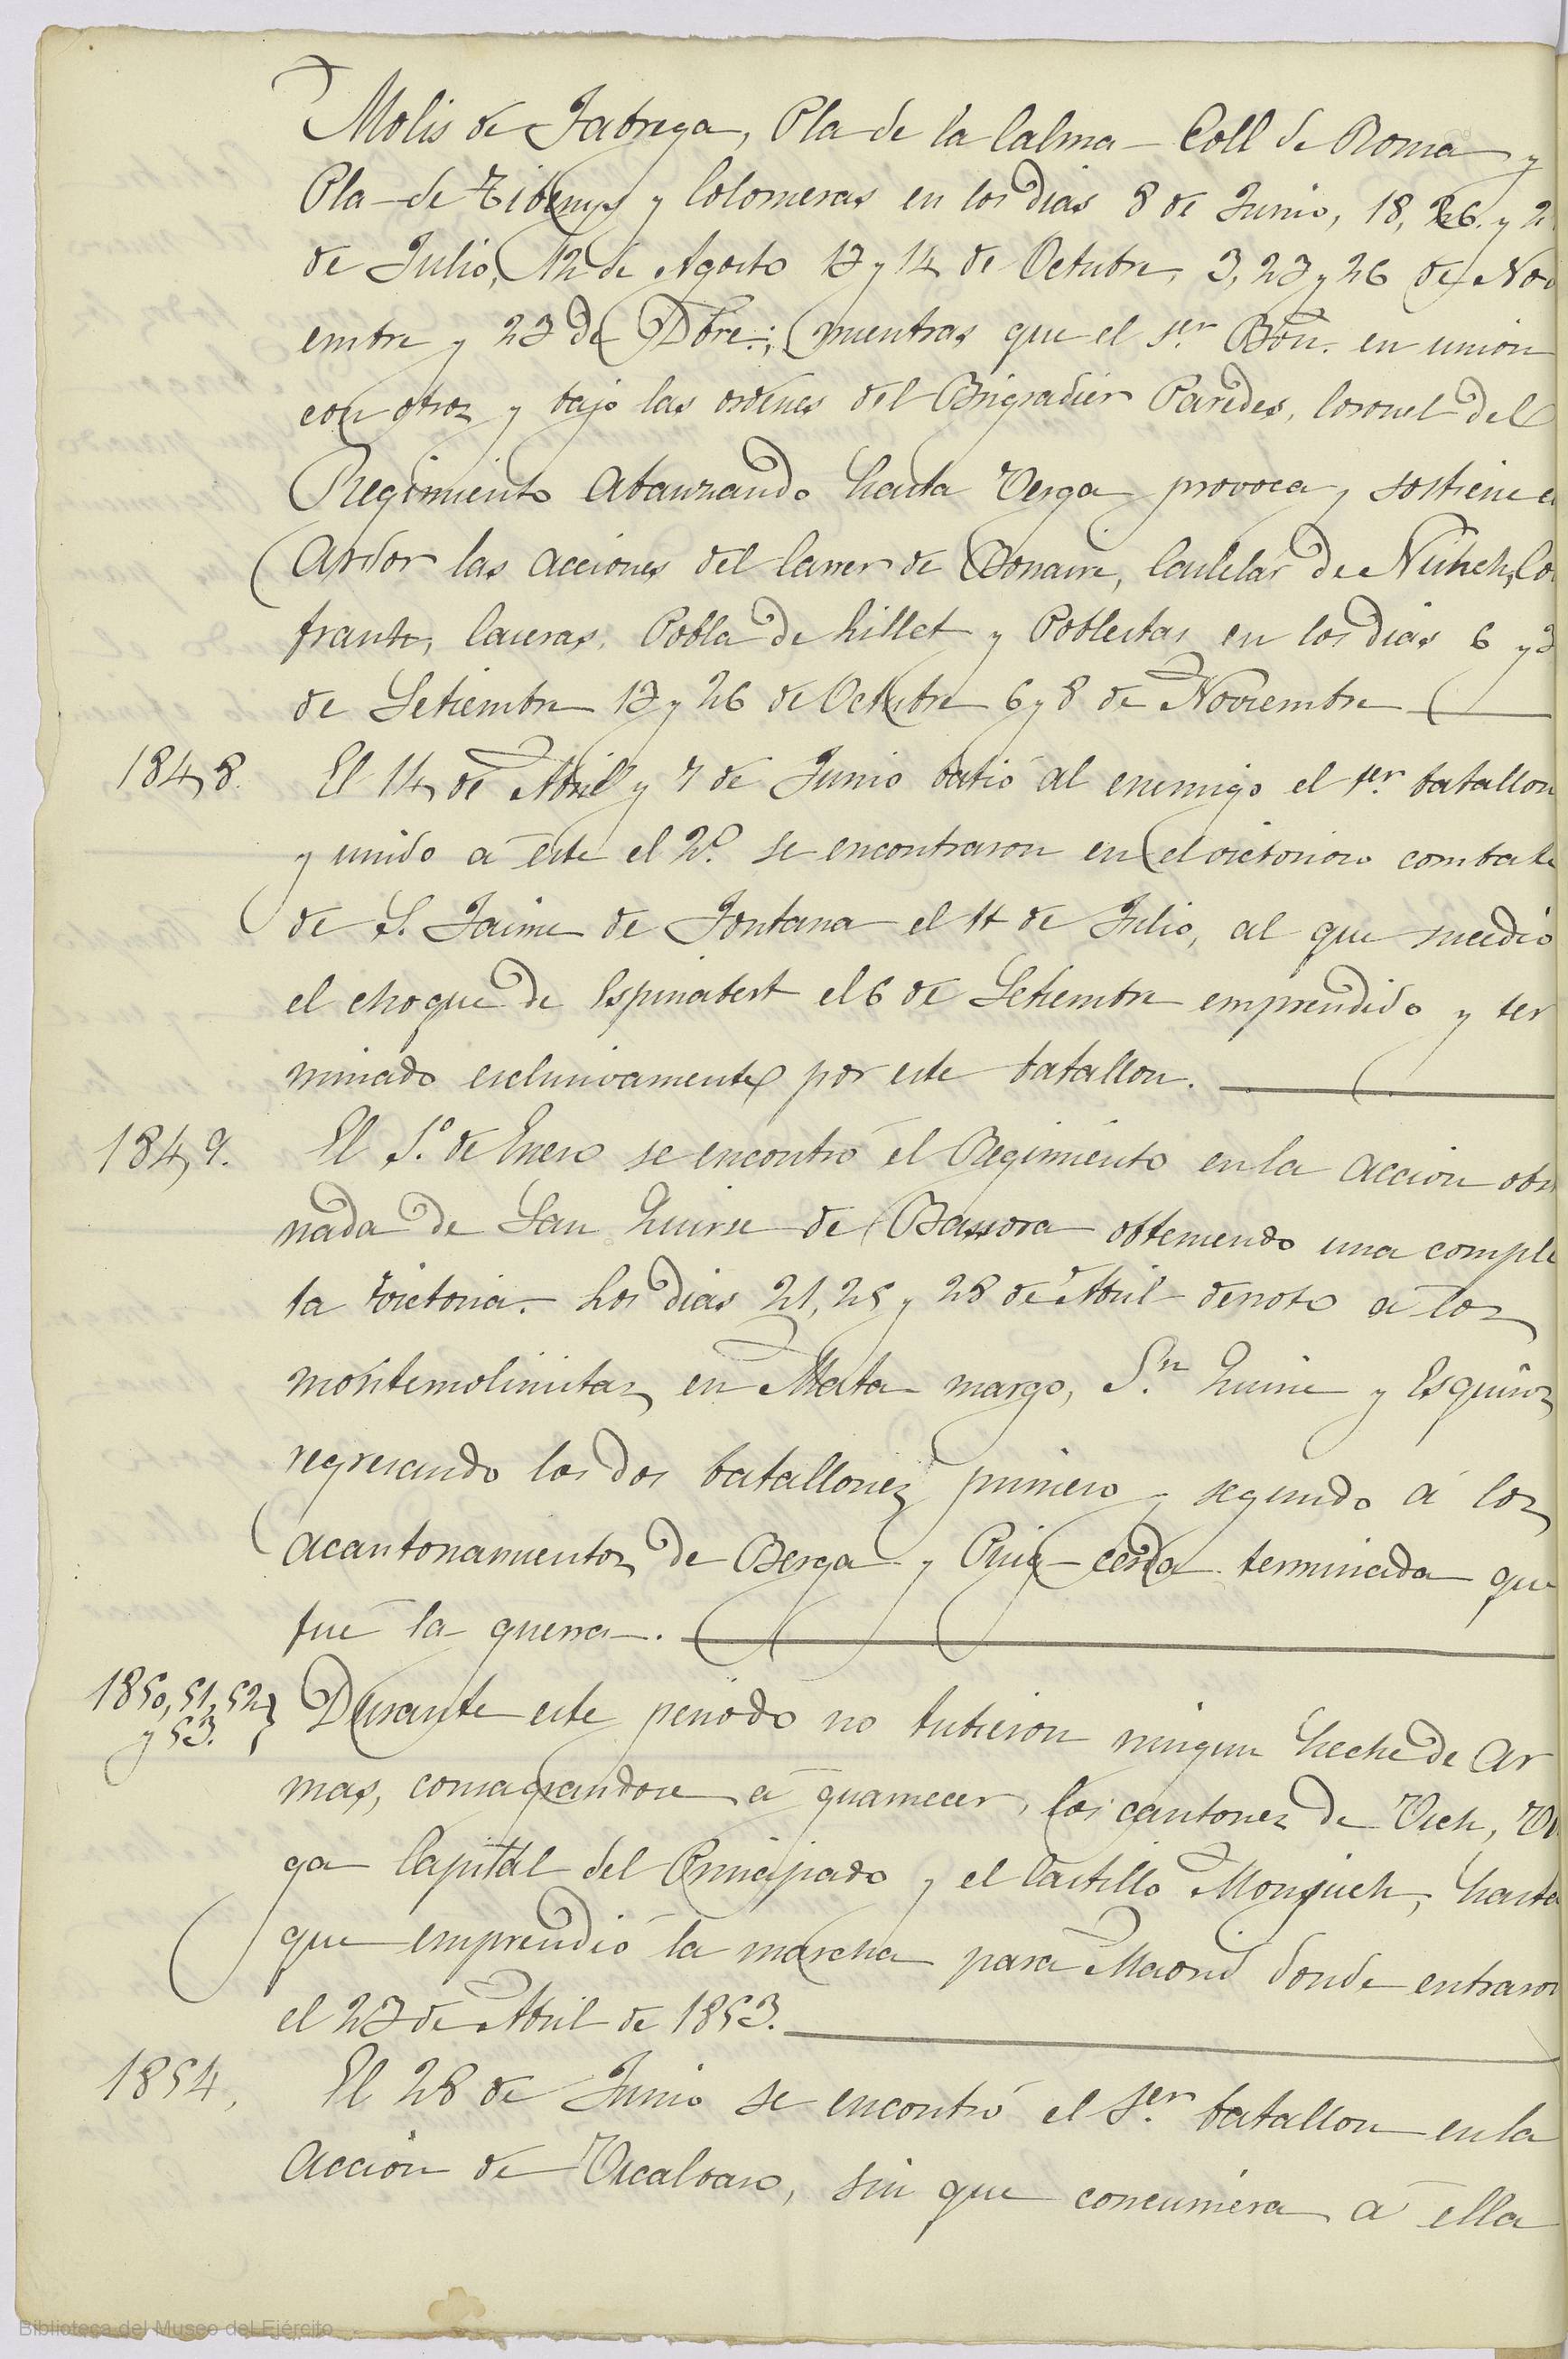 Molis de Fabrega, Pla de la Calma - Coll de Roma y
Pla de Tibenys y Colomeras en los dias 8 de Junio, 18, 26 y 2
de Julio, 12 de Agosto 13 y 14 de Octubre, 3, 23 y 26 de Nov
embre y 23 de Dbre.; mientras que el 1er Bon. en union
con otros y bajo las ordenes del Brigadier Paredes, Coronel del
Regimiento abanzando hasta Verga provoca y sostiene
ardor las acciones del Carrer de Bonaire, de
Caseras, Pobla de Lillet y Pobletas en los dias 6 y
de Setiembre 13 y 26 de Octubre 6 y 8 de Noviembre
1848. El 14 de Abril y 7 de Junio batió al enemigo el 1er. batallon
y unido á este el 2º. se encontraron en el victorioso combate
de S. Jaime de Fontana el 11 de Julio, al que sucedió
el choque de Espinabert el 6 de Setiembre emprendido y ter
minado esclusivamente por este batallon.
1849. El 1º. de Enero se encontró el Regimiento en la accion obsti
nada de San Quirse de Bassora obteniendo una comple
ta victoria. Los dias 21, 25 y 28 de Abril derroto á los
montemolinistas en Mata margo, Sn. Quirse y Esquirol
regresando los dos batallones primero y segundo á los
acantonamientos de Berga y Puig-cerda terminada que
fué la guerra.
1850, 51, 52 y 53. Durante este periodo no tubieron ningun hecho de ar
mas, consagrandose á guarnecer, los cantones de Vich, Ver
ga Capital del Principado y el Castillo Monjuich, hasta
que emprendió la marcha para Madrid donde entraron
el 23 de Abril de 1853.
1854. El 28 de Junio se encontró el 1er. batallon en la
accion de Vicalvaro, sin que concurriera á ella
Biblioteca del Museo del Ejército